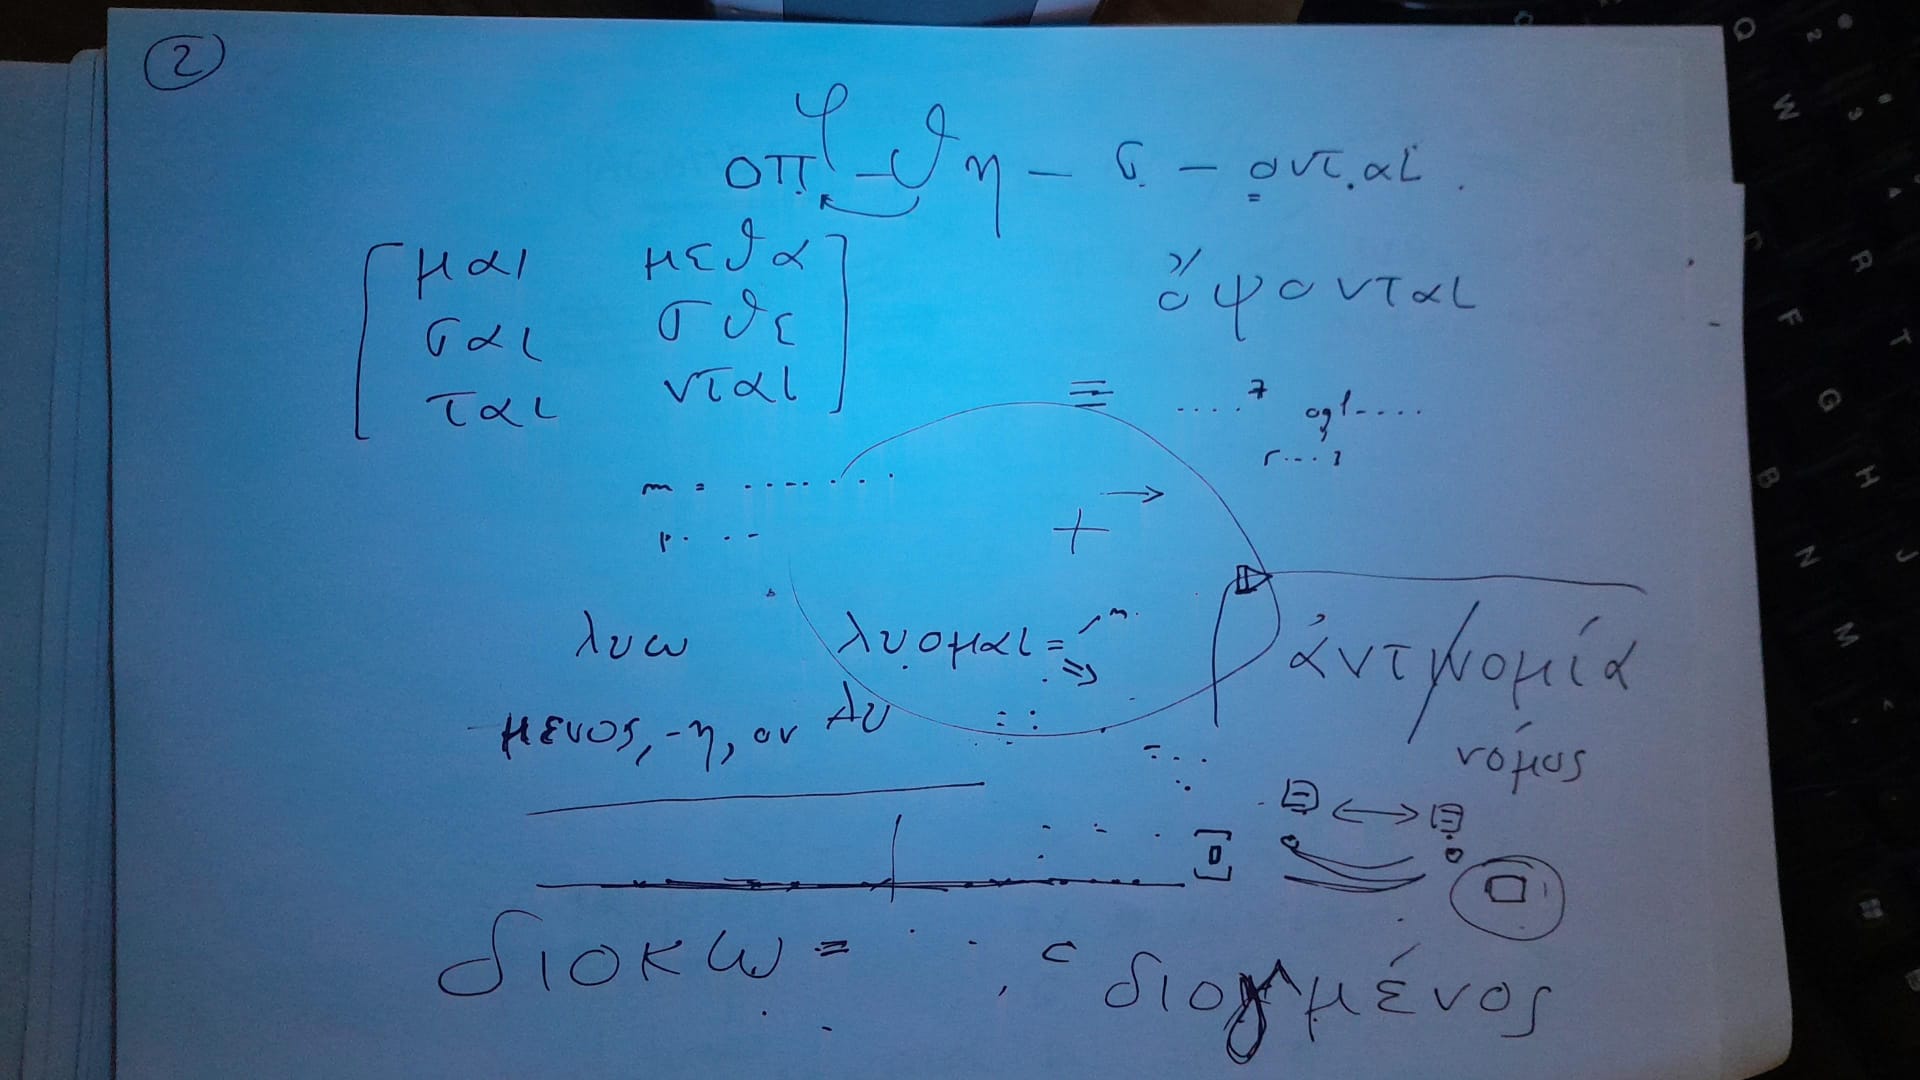 2
φ
οπ - θη - σ - ονται.
μαι μεθα
σαι σθε
ται νται
ὄψονται
λυω λυομαι =
-μενος, -η, ον λυ
ἀντι/νομία
νόμος
διοκω =
διογμένος